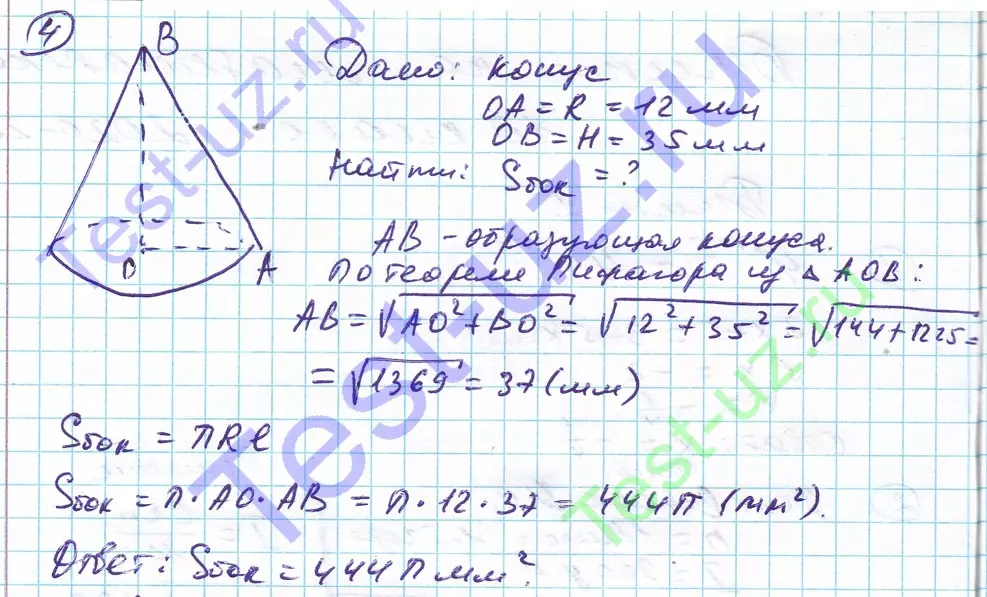 4
B
O
A
Дано: конус
OA = R = 12 мм
OB = H = 35 мм
Найти: Sбок = ?
AB - образующая конуса.
По теореме Пифагора из △ AOB:
AB = √AO² + BO² = √12² + 35² = √144 + 1225 =
= √1369 = 37 (мм)
Sбок = πRl
Sбок = π · AO · AB = π · 12 · 37 = 444π (мм²).
Ответ: Sбок = 444π мм².
Test-uz.ru
Test-uz.ru
Test-uz.ru